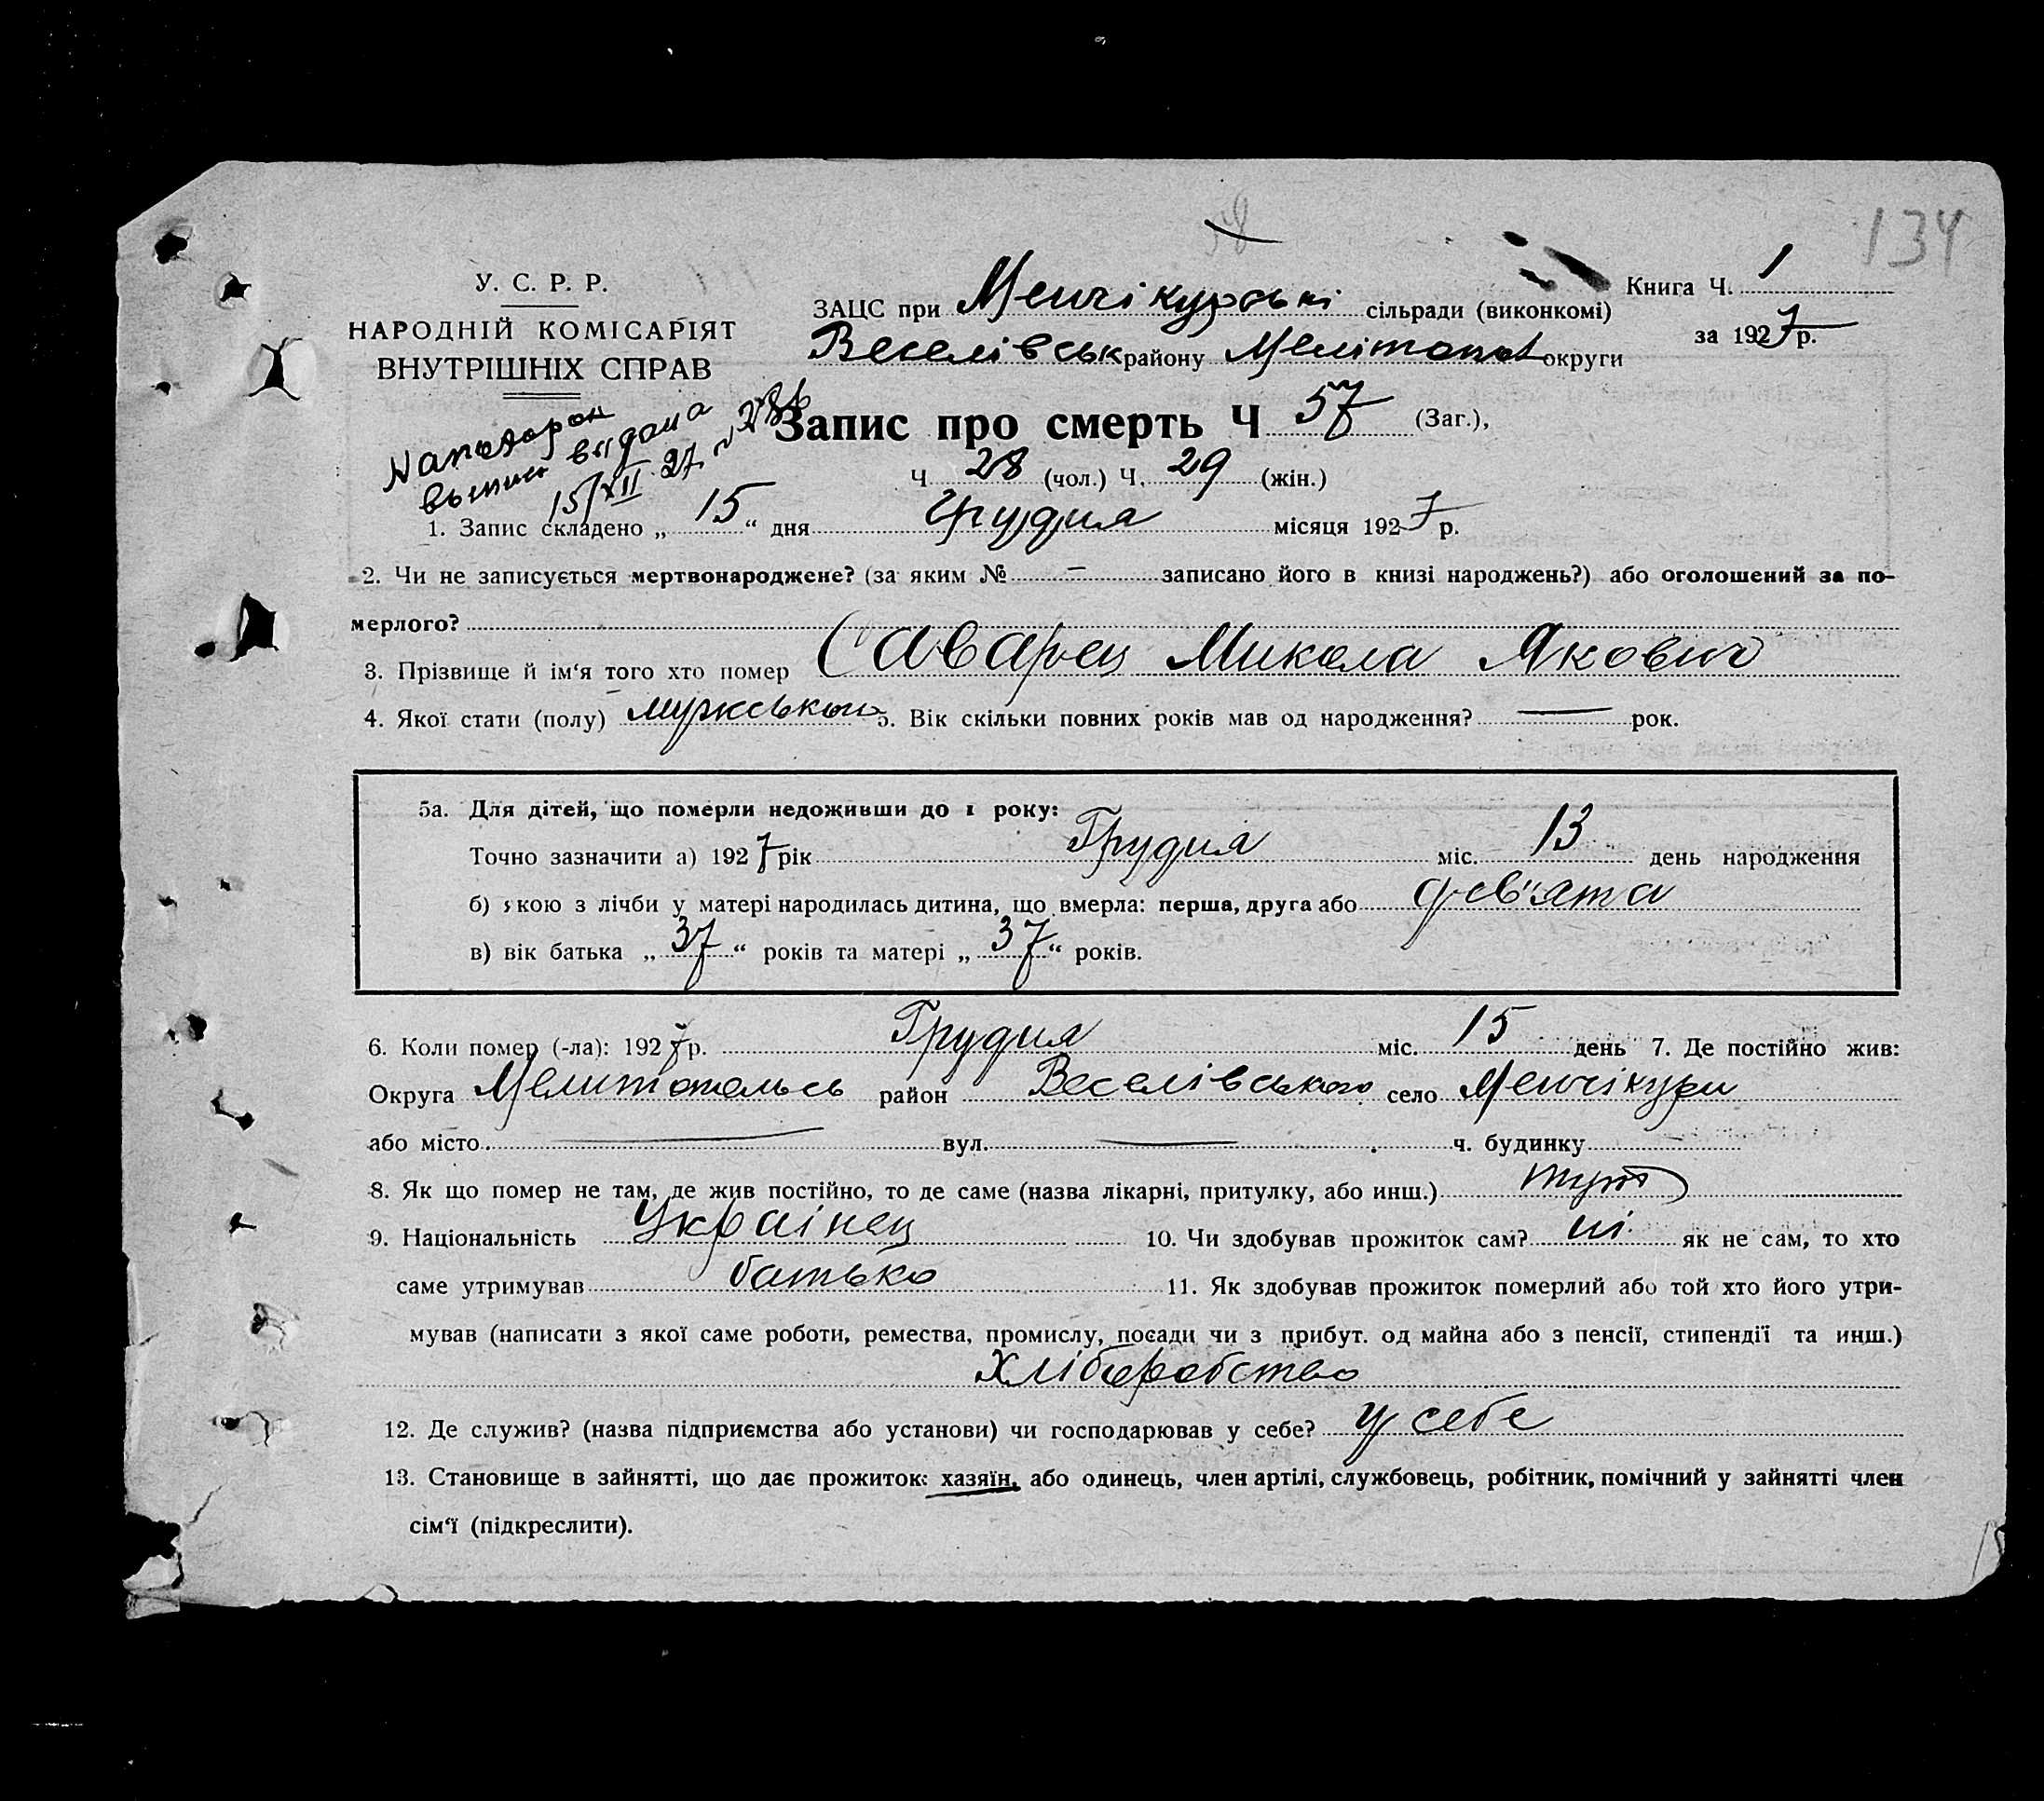 134
У. С. Р. Р.
НАРОДНІЙ КОМІСАРІЯТ
ВНУТРІШНІХ СПРАВ
ЗАЦС при Менчікурські сільради (виконкомі)
Книга Ч. 1
за 1927 р.
Веселівськ району Мелітопол округи
выпись выдана
15/XII 27
Запис про смерть Ч 57 (Заг.),
Ч 28 (чол.) Ч. 29 (жін.)
1. Запис складено „ 15 “ дня Грудня місяця 1927 р.
2. Чи не записується мертвонароджене? (за яким № — записано його в книзі народжень?) або оголошений за по-
мерлого?
3. Прізвище й ім‘я того хто помер Саварец Микола Якович
4. Якої стати (полу) мужського 5. Вік скільки повних років мав од народження? — рок.
5а. Для дітей, що померли недоживши до 1 року:
Точно зазначити а) 1927 рік Грудня міс. 13 день народження
б) якою з лічби у матері народилась дитина, що вмерла: перша, друга або дев'ята
в) вік батька „ 37 “ років та матері „ 37 “ років.
6. Коли помер (-ла): 1927 р. Грудня міс. 15 день 7. Де постійно жив:
Округа Мелитопольсь район Веселівського село Менчікури
або місто — вул. — ч. будинку
8. Як що помер не там, де жив постійно, то де саме (назва лікарні, притулку, або инш.) тут
9. Національність Українец 10. Чи здобував прожиток сам? ні як не сам, то хто
саме утримував батько 11. Як здобував прожиток померлий або той хто його утри-
мував (написати з якої саме роботи, ремества, промислу, посади чи з прибут. од майна або з пенсії, стипендії та инш.)
Хліборобство
12. Де служив? (назва підприємства або установи) чи господарював у себе? у себе
13. Становище в зайнятті, що дає прожиток: хазяїн, або одинець, член артілі, службовець, робітник, помічний у зайнятті член
сім‘ї (підкреслити).